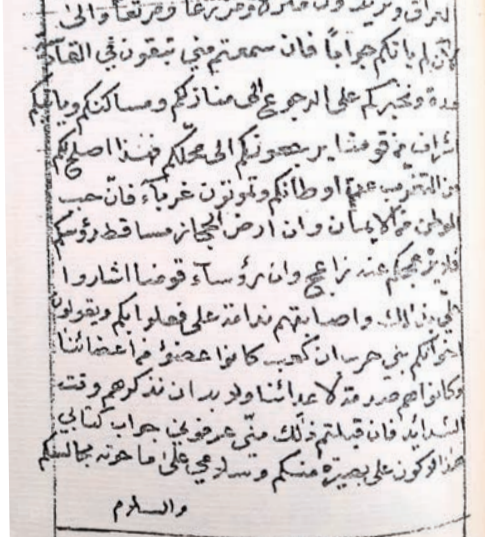 العراق وتريدون منزلا ومزرعا ومرتعا والى
الآن لم ياتكم جوابا فان سمعتم مني تبقون في القآ
مدة ونجبركم على الرجوع الى منازلكم ومساكنكم وياتيكم
اشراف من قومنا يرجعونكم الى محلكم فهذا اصلح لكم
من التغرب عن اوطانكم وتموتون غرباء فان حب
الوطن من الايمان وان ارض الحجاز مساقط رؤسكم
فلا يزعجكم عنه زاعج وان رؤسآء قومنا اشاروا
علي بذلك واصابتهم ندامة على فعلوا بكم ويقولون
اخوانكم بني حرب ان كعب كانوا عضوا من اعضائنا
وكانوا هم صدمة لاعدائنا ولا بد ان نذكرهم وقت
الشدائد فان قبلتم ذلك مني عرفوني جواب كتابي
هذا لاكون على بصيرة منكم وسلامي على ما حوته مجالسكم
والسلام